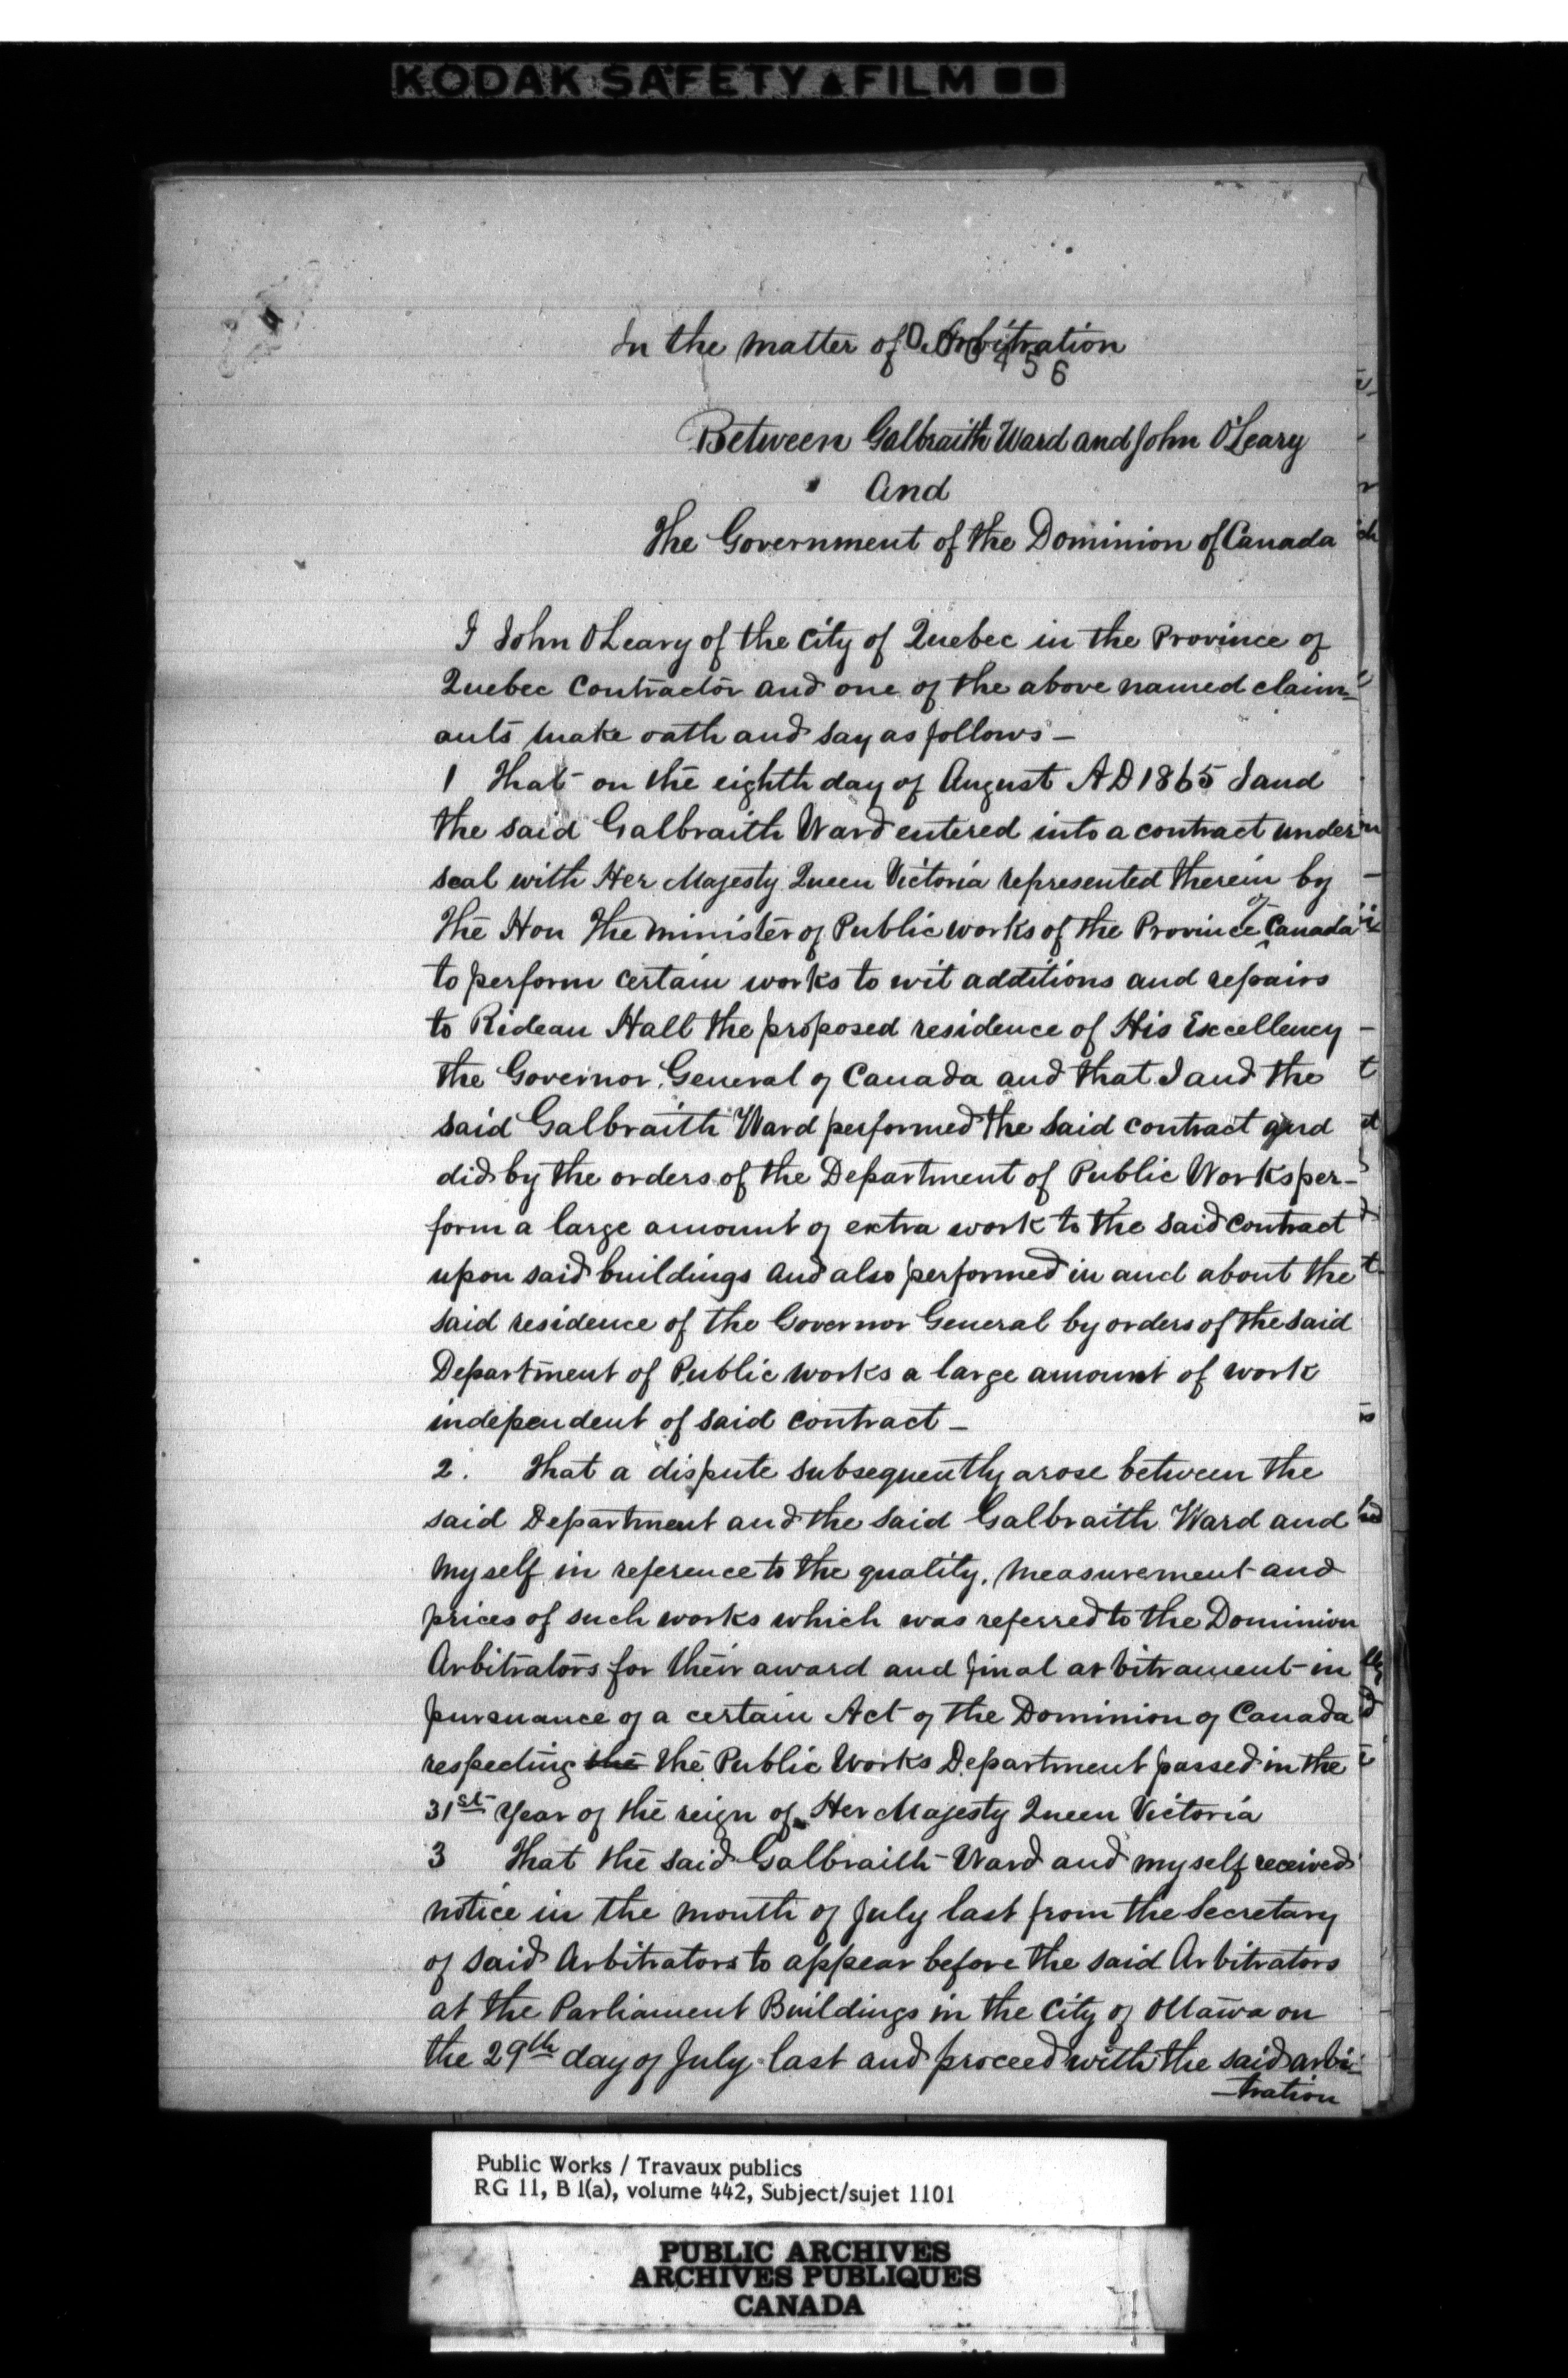 KODAK SAFETY FILM
In the matter of Arbitration
456
Between Galbraith Ward and John O'Leary
And
The Government of the Dominion of Canada
I John O Leary of the City of Quebec in the Province of
Quebec Contractor and one of the above named claim-
ants make oath and say as follows -
1 That on the eighth day of August AD 1865 I and
the said Galbraith Ward entered into a contract under
seal with Her Majesty Queen Victoria represented therein by
The Hon The minister of Public works of the Province of Canada
to perform certain works to wit additions and repairs
to Rideau Hall the proposed residence of His Excellency
the Governor General of Canada and that I and the
said Galbraith Ward performed the said contract and
did by the orders of the Department of Public Works per-
form a large amount of extra work to the said contract
upon said buildings and also performed in and about the
said residence of the Governor General by orders of the said
Department of Public works a large amount of work
independent of said contract -
2. That a dispute subsequently arose between the
said Department and the said Galbraith Ward and
myself in reference to the quality, measurement and
prices of such works which was referred to the Dominion
Arbitrators for their award and final arbitrament in
pursuance of a certain Act of the Dominion of Canada
respecting the the Public Works Department passed in the
31st Year of the reign of Her Majesty Queen Victoria
3 That the said Galbraith Ward and myself received
notice in the month of July last from the Secretary
of said Arbitrators to appear before the said Arbitrators
at the Parliament Buildings in the City of Ottawa on
the 29th day of July last and proceed with the said arbi-
-tration
Public Works / Travaux publics
RG 11, B 1(a), volume 442, Subject/sujet 1101
PUBLIC ARCHIVES
ARCHIVES PUBLIQUES
CANADA